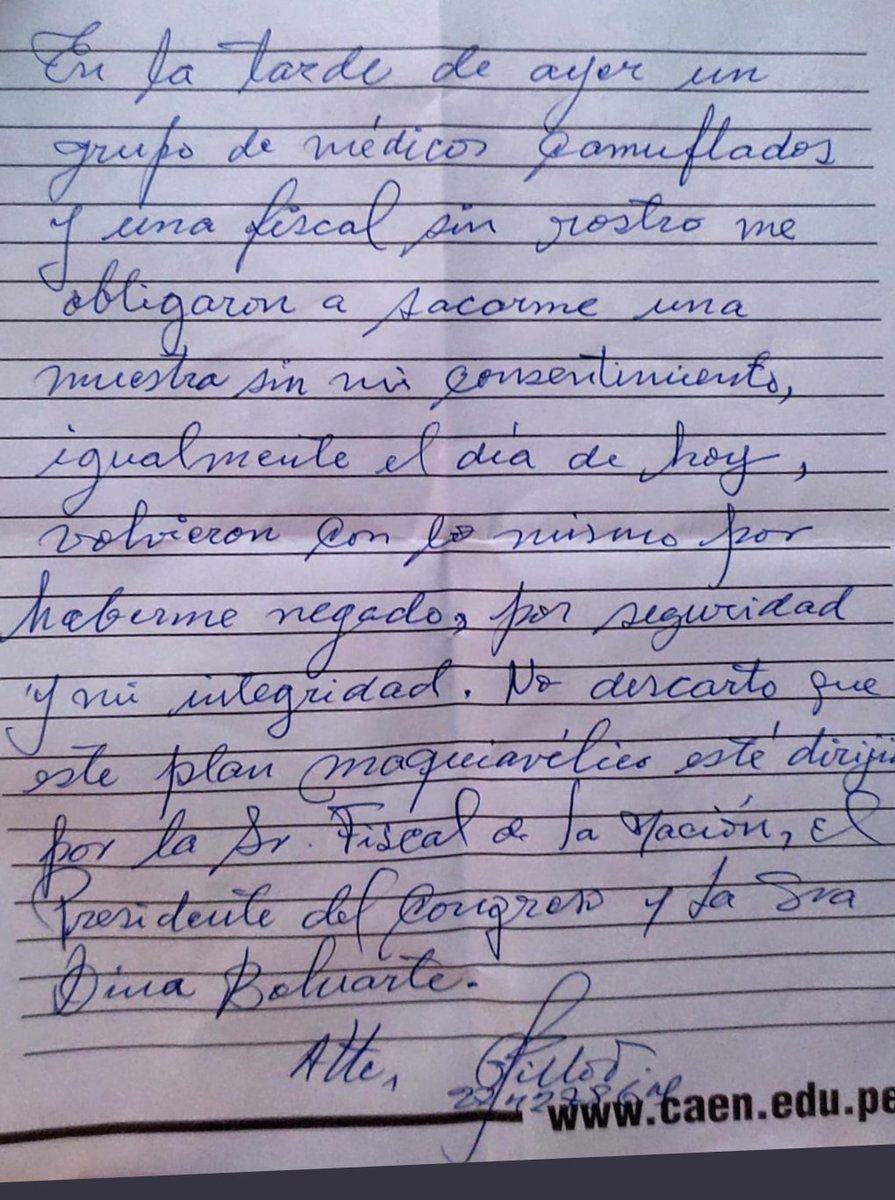 En la tarde de ayer un
grupo de médicos camuflados
y una fiscal sin rostro me
obligaron a sacarme una
muestra sin mi consentimiento,
igualmente el día de hoy,
volvieron con lo mismo por
haberme negado, por seguridad
y mi integridad. No descarto que
este plan maquiavélico esté diriji
por la Sr. Fiscal de la Nación, el
Presidente del Congreso y la Sra
Dina Boluarte.
Atte,
www.caen.edu.pe